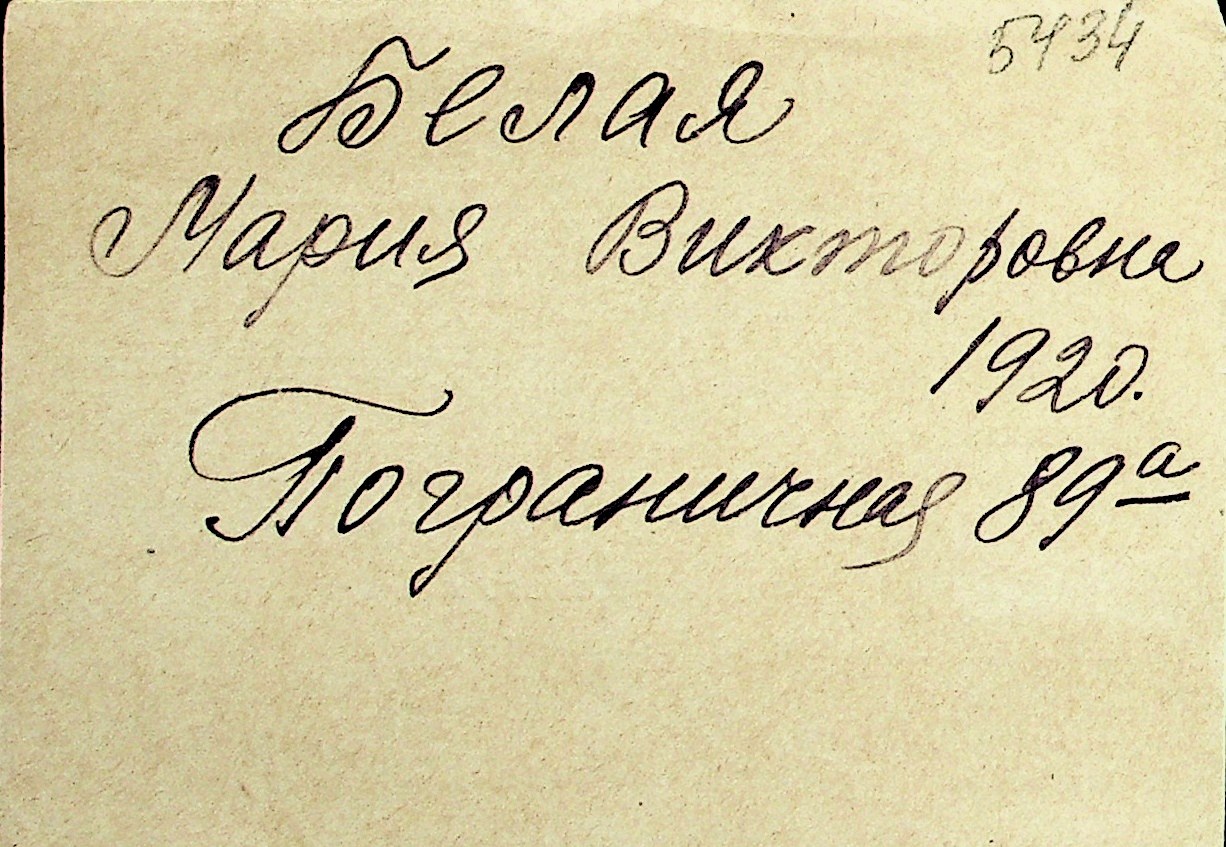 5434
Белая
Мария Викторовна
1920.
Пограничная 89а